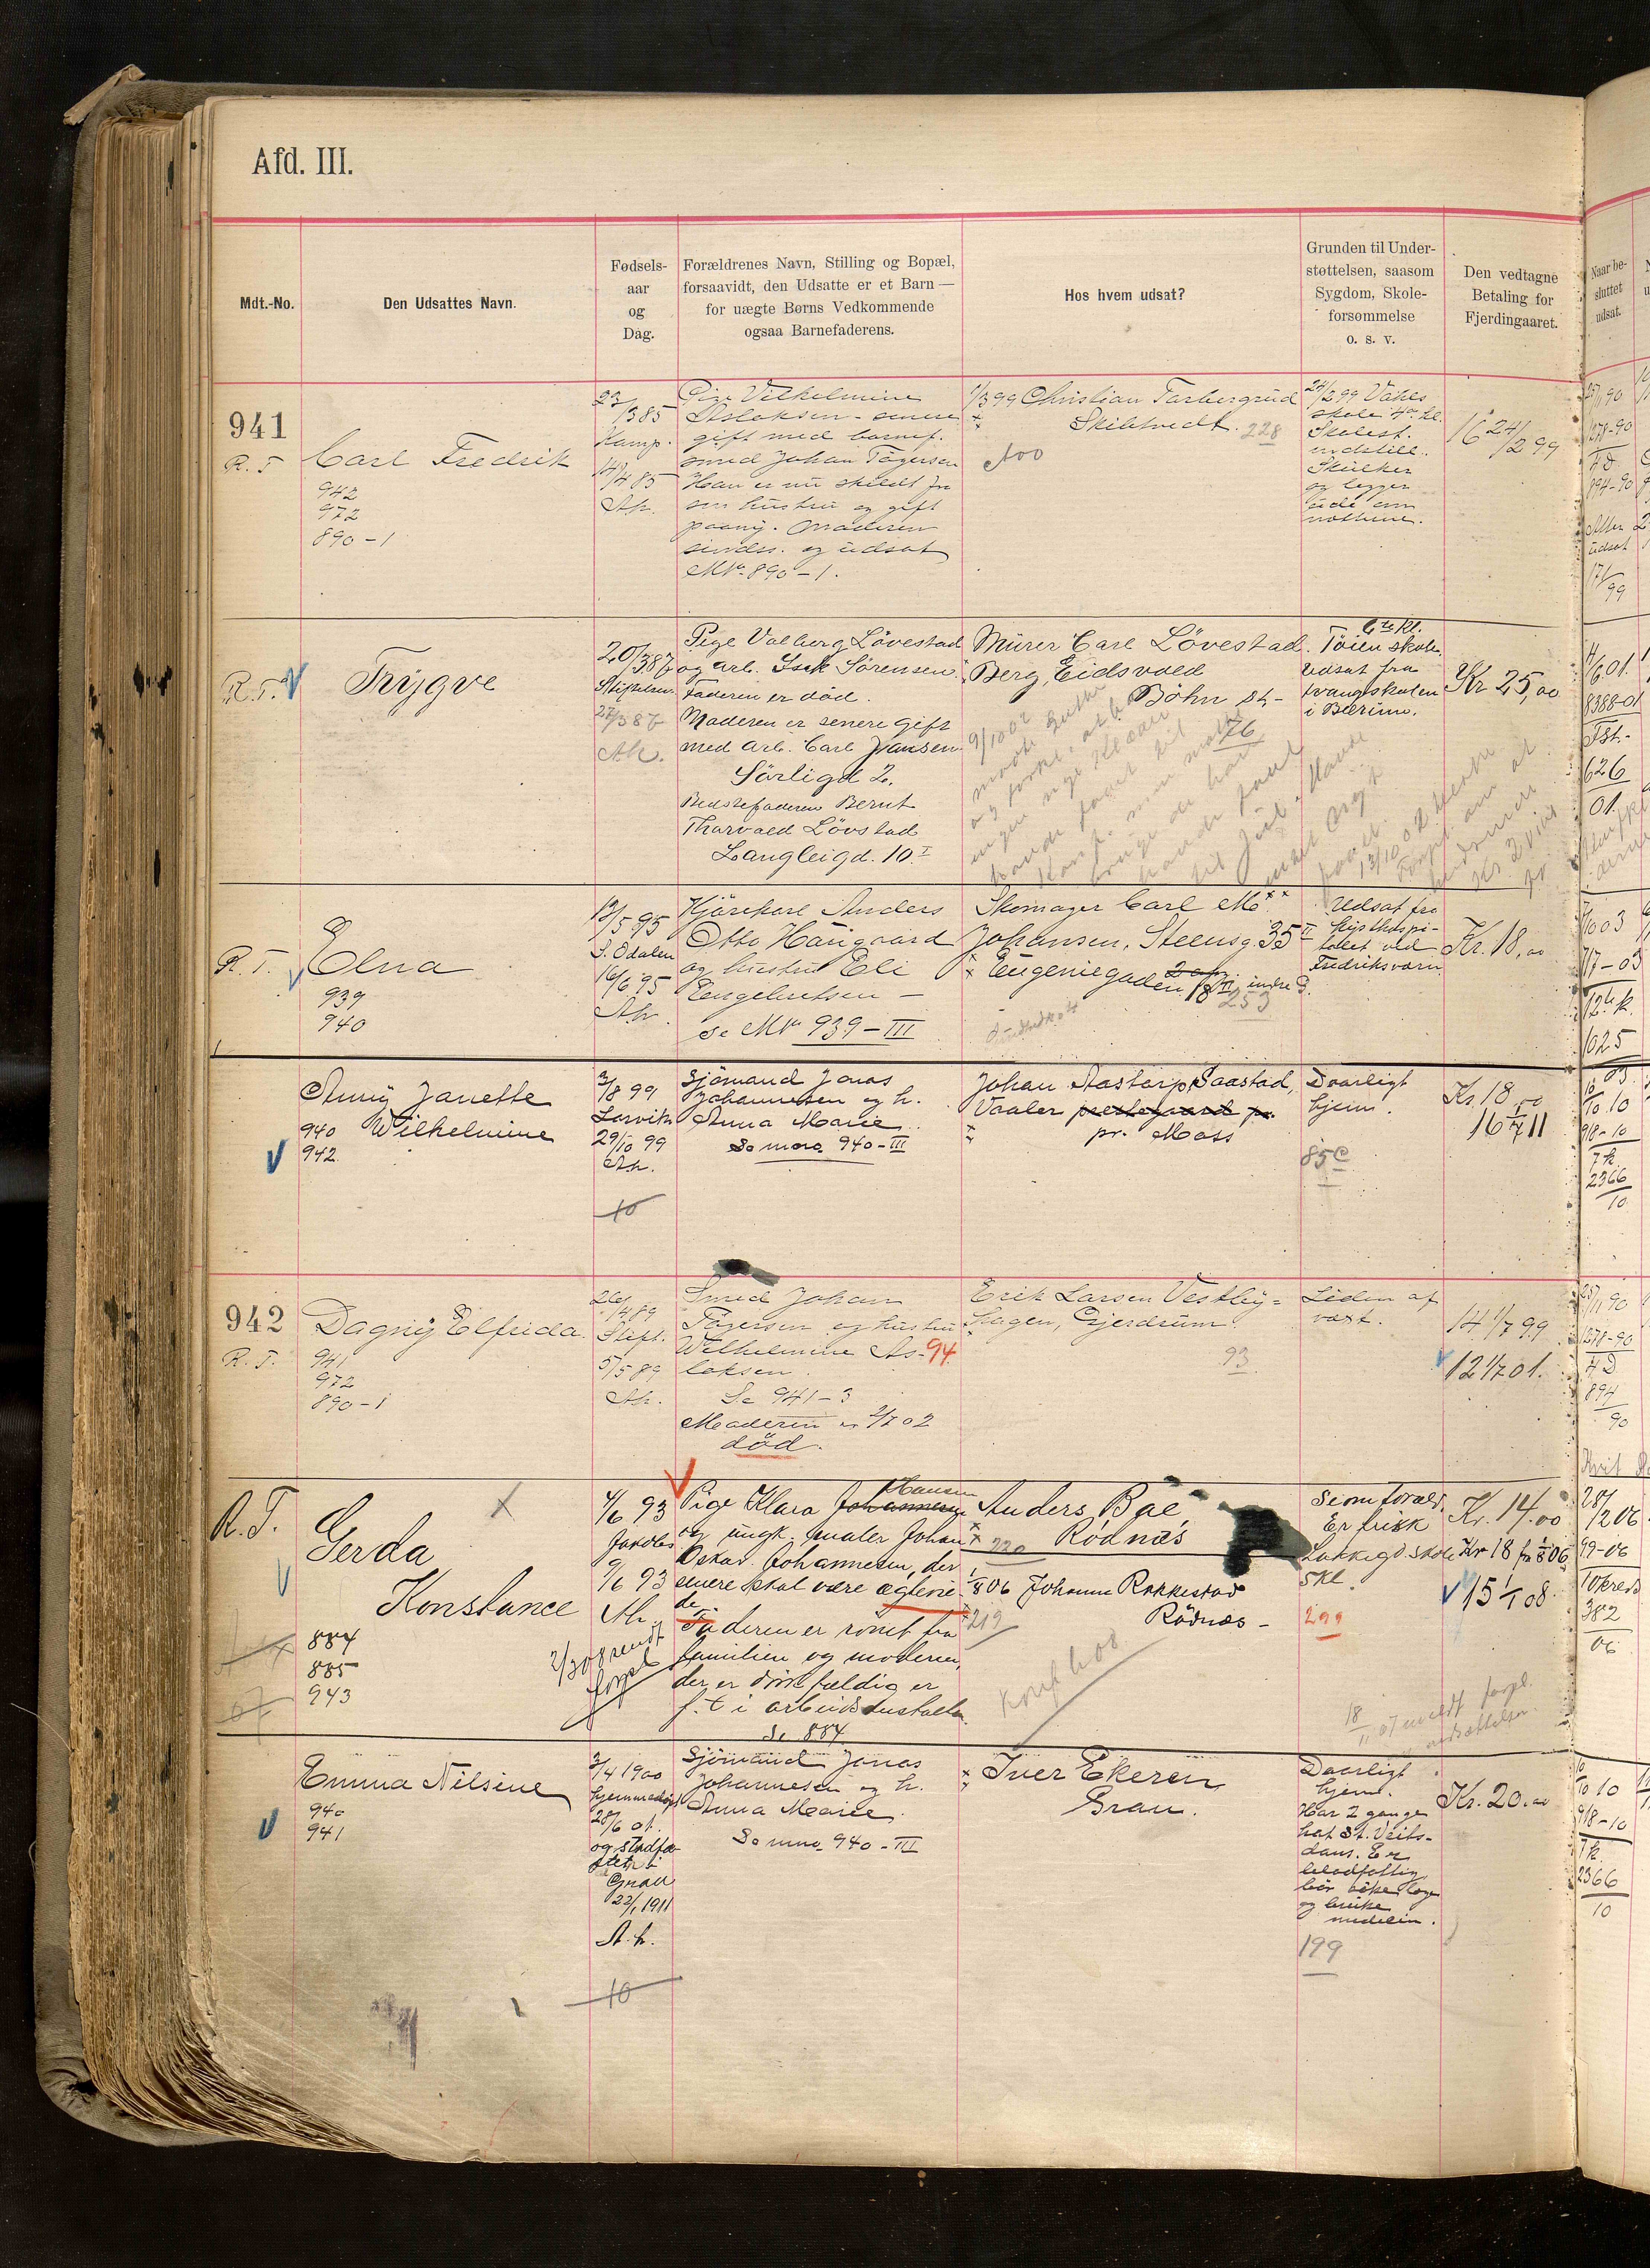 Afd. III.
Mdt.-No.
Den Udsattes Navn.
Fødsels-
aar
og
Dag.
Forældrenes Navn, Stilling og Bopæl,
forsaavidt, den Udsatte er et Barn —
for uægte Børns Vedkommende
ogsaa Barnefaderens.
Hos hvem udsat?
Grunden til Under-
støttelsen, saasom
Sygdom, Skole-
forsømmelse
o. s. v.
Den vedtagne
Betaling for
Fjerdingaaret.
Naar be-
sluttet
udsat.
941
R. T
Carl Fredrik
942
972
890-1
23/3 85
Kamp.
14/4 85
Ah.
Pige Vilhelmine
Aslaksen - senere
gift med barnef.
smed Johan Tøgersen
Han er nu skildt fra
sin hustru og gift
paany. Moderen
sindss. og udsat
M№ 890-1.
1/3 99 Christian
Skibtvedt. 228
24/2 99 Vahls
skole 4de kl.
Skolest.
indstill.
Skulker
og ligger
ude om
nætterne.
16 24/2 99
25/11 90
1278-90
4 D
894-90
Atter
udsat
17/99
R. T.
Trygve
20/3 87
Stiftelsen
27/3 87
Ah.
Pige Valborg Lövestad
og arb. Isak Sörensen
Faderen er död.
Moderen er senere gift
med arb. Carl Jansen
Sörligd 2.
Bedstefaderen Bernt
Thorvald Lövstad
Langleigd. 10 I
Murer Carl Lövestad.
Berg, Eidsvold
Böhn st-
76
9/10 02
6te kl.
Töien skole
Udsat fra
tvangsskolen
i Bærum.
13/10 02
Kr 25,00
4/6 01
8388-01
Tst.-
626
01.
R. T.
Elna
939
940
13/5 95
S. Odalen
16/6 95
Ah.
Kjörekarl Anders
Otto Haugaard
og hustru Eli
Engebretsen —
se M№ 939-III
Skomager Carl M.
Johansen, Steensg. 35 II
Eugeniegaden 18 II, indre G.
253
Udsat fra
hospi-
talet ved
Fredriksværn
Kr. 18,00
17-03
12te k.
1025
03
Anny Janette
Wilhelmine
940
942
3/8 99
Larvik
29/10 99
Ah.
10
Sjömand Jonas
Johannesen og h.
Anna Marie
Se mno. 940-III
Johan Aastorp, Saastad,
Vaaler prestegaard pr.
pr. Moss
Daarligt
hjem.
85
Kr. 18,00
16 1/7 11
10/10 10
918-10
7 k.
2366
10
942
R. T.
Dagny Elfrida
941
972
890-1
26/4 89
Stift.
5/5 89
Ah.
Smed Johan
Tøgersen og hustru
Wilhelmine As- 94
laksen.
Se 941-3
Moderen er 2/7 02
död.
Erik Larsen Vestby-
hagen, Gjerdrum.
93
Liden af
væxt.
14 1/7 99
12 1/7 01.
25/11 90
1278-90
4 D
894
90
R. T.
Gerda
Konstance
884
885
943
4/6 93
9/6 93
Ah.
Pige Klara Johannesen Hansen
og ungk. maler Johan
Oskar Johannesen, der
senere skal være ægtevie
de
Faderen er römt fra
familien og moderen,
der er drikfældig er
f. t. i arbeidsanstalten.
Se 884
Anders Bae,
220 Rödnæs
1/8 06 Johannes Rakkestad
Rödnæs -
219
konf h 08
Siomforæld.
Er frisk
Lakkegd. skole
5 kl.
299
Kr. 14.00
Kr 18 fra 1/8 06
15 1/1 08.
28/12 06
99-06
10 kreds
382
06
Emma Nilsine
940
941
3/4 1900
hjemmedöbt
28/6 01.
og stadfæ-
stet i
Gran
22/1 1911
A. h.
10
Sjömand Jonas
Johannesen og h.
Anna Marie.
Se mno. 940-III
Iver Ekeren
Gran.
Daarligt
hjem.
Har 2 gange
hat St. Veits-
dans. Er
blodfattig
bör söke læge
og bruke
medicin.
199
Kr. 20.00
10/10 10
918-10
7 k.
2366
10